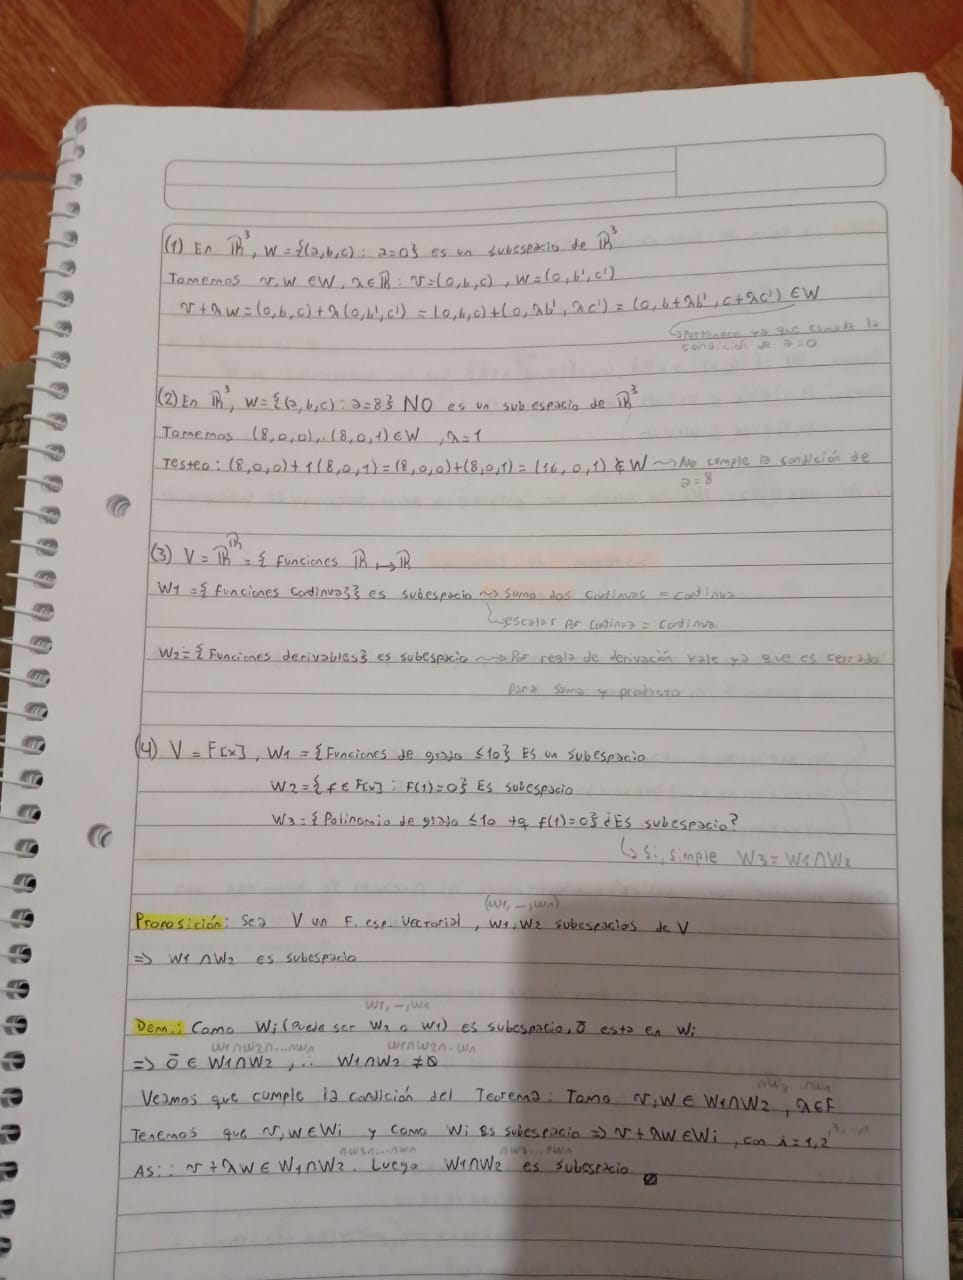 (1) En ℝ³, W = {(a,b,c) : a=0} es un subespacio de ℝ³
Tomemos v, w ∈ W, λ ∈ ℝ : v=(0,b,c), w=(0,b',c')
v+λw=(0,b,c)+λ(0,b',c') = (0,b,c)+(0,λb',λc') = (0,b+λb',c+λc') ∈ W
↳ Pertenece ya que cumple la
condición de a=0
(2) En ℝ³, W={(a,b,c) : a=8} NO es un subespacio de ℝ³
Tomemos (8,0,0), (8,0,1) ∈ W, λ=1
Testeo: (8,0,0)+1(8,0,1)=(8,0,0)+(8,0,1)=(16,0,1) ∉ W ⇝ No cumple la condición de
a=8
(3) V = ℝ^ℝ = { Funciones ℝ ↦ ℝ
W1 = { Funciones continuas} es subespacio ⇝ Suma dos continuas = continua
↳ escalar por continua = continua.
W2 = { Funciones derivables} es subespacio ⇝ Por regla de derivación vale ya que es cerrado
para suma y producto
(4) V = F[x], W1 = {Funciones de grado ≤10} Es un subespacio
W2 = {f ∈ F[x] : F(1)=0} Es subespacio
W3 = {Polinomio de grado ≤10 tq f(1)=0} ¿Es subespacio?
↳ Si, simple W3 = W1∩W2
(W1, –, Wn)
Proposición: Sea V un F. esp. vectorial, W1, W2 subespacios de V
=> W1 ∩ W2 es subespacio
W1, –, Wn
Dem.: Como Wi (puede ser W2 o W1) es subespacio, 0̄ esta en Wi
W1∩W2∩...∩Wn W1∩W2∩–Wn
=> 0̄ ∈ W1∩W2, ∴ W1∩W2 ≠ ∅
Veamos que cumple la condición del Teorema: Tomo v, w ∈ W1∩W2, λ∈F
Tenemos que v, w ∈ Wi y como Wi es subespacio => v+λw ∈ Wi, con i=1,2
∩W3∩...∩Wn ∩W3...∩Wn
Así: v+λw ∈ W1∩W2. Luego W1∩W2 es subespacio